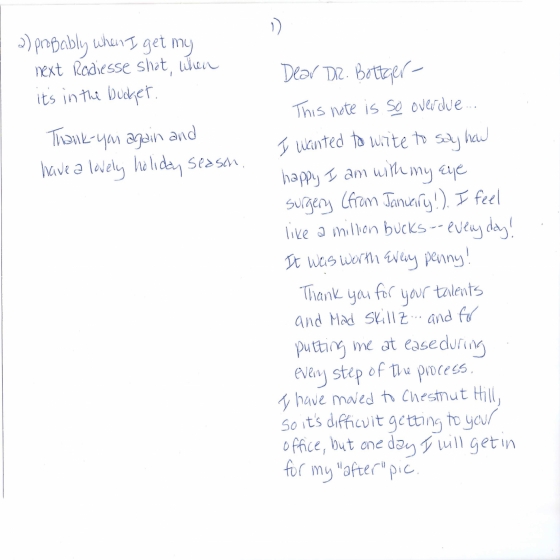 1)
Dear DR. Bottger -
This note is so overdue...
I wanted to write to say how
happy I am with my eye
surgery (from January!). I feel
like a million bucks -- every day!
It was worth every penny!
Thank you for your talents
and Mad Skillz... and for
putting me at ease during
every step of the process.
I have moved to Chestnut Hill,
so it's difficult getting to your
office, but one day I will get in
for my "after" pic.
2) probably when I get my
next Radiesse shot, when
it's in the budget.
Thank-you again and
have a lovely holiday season.